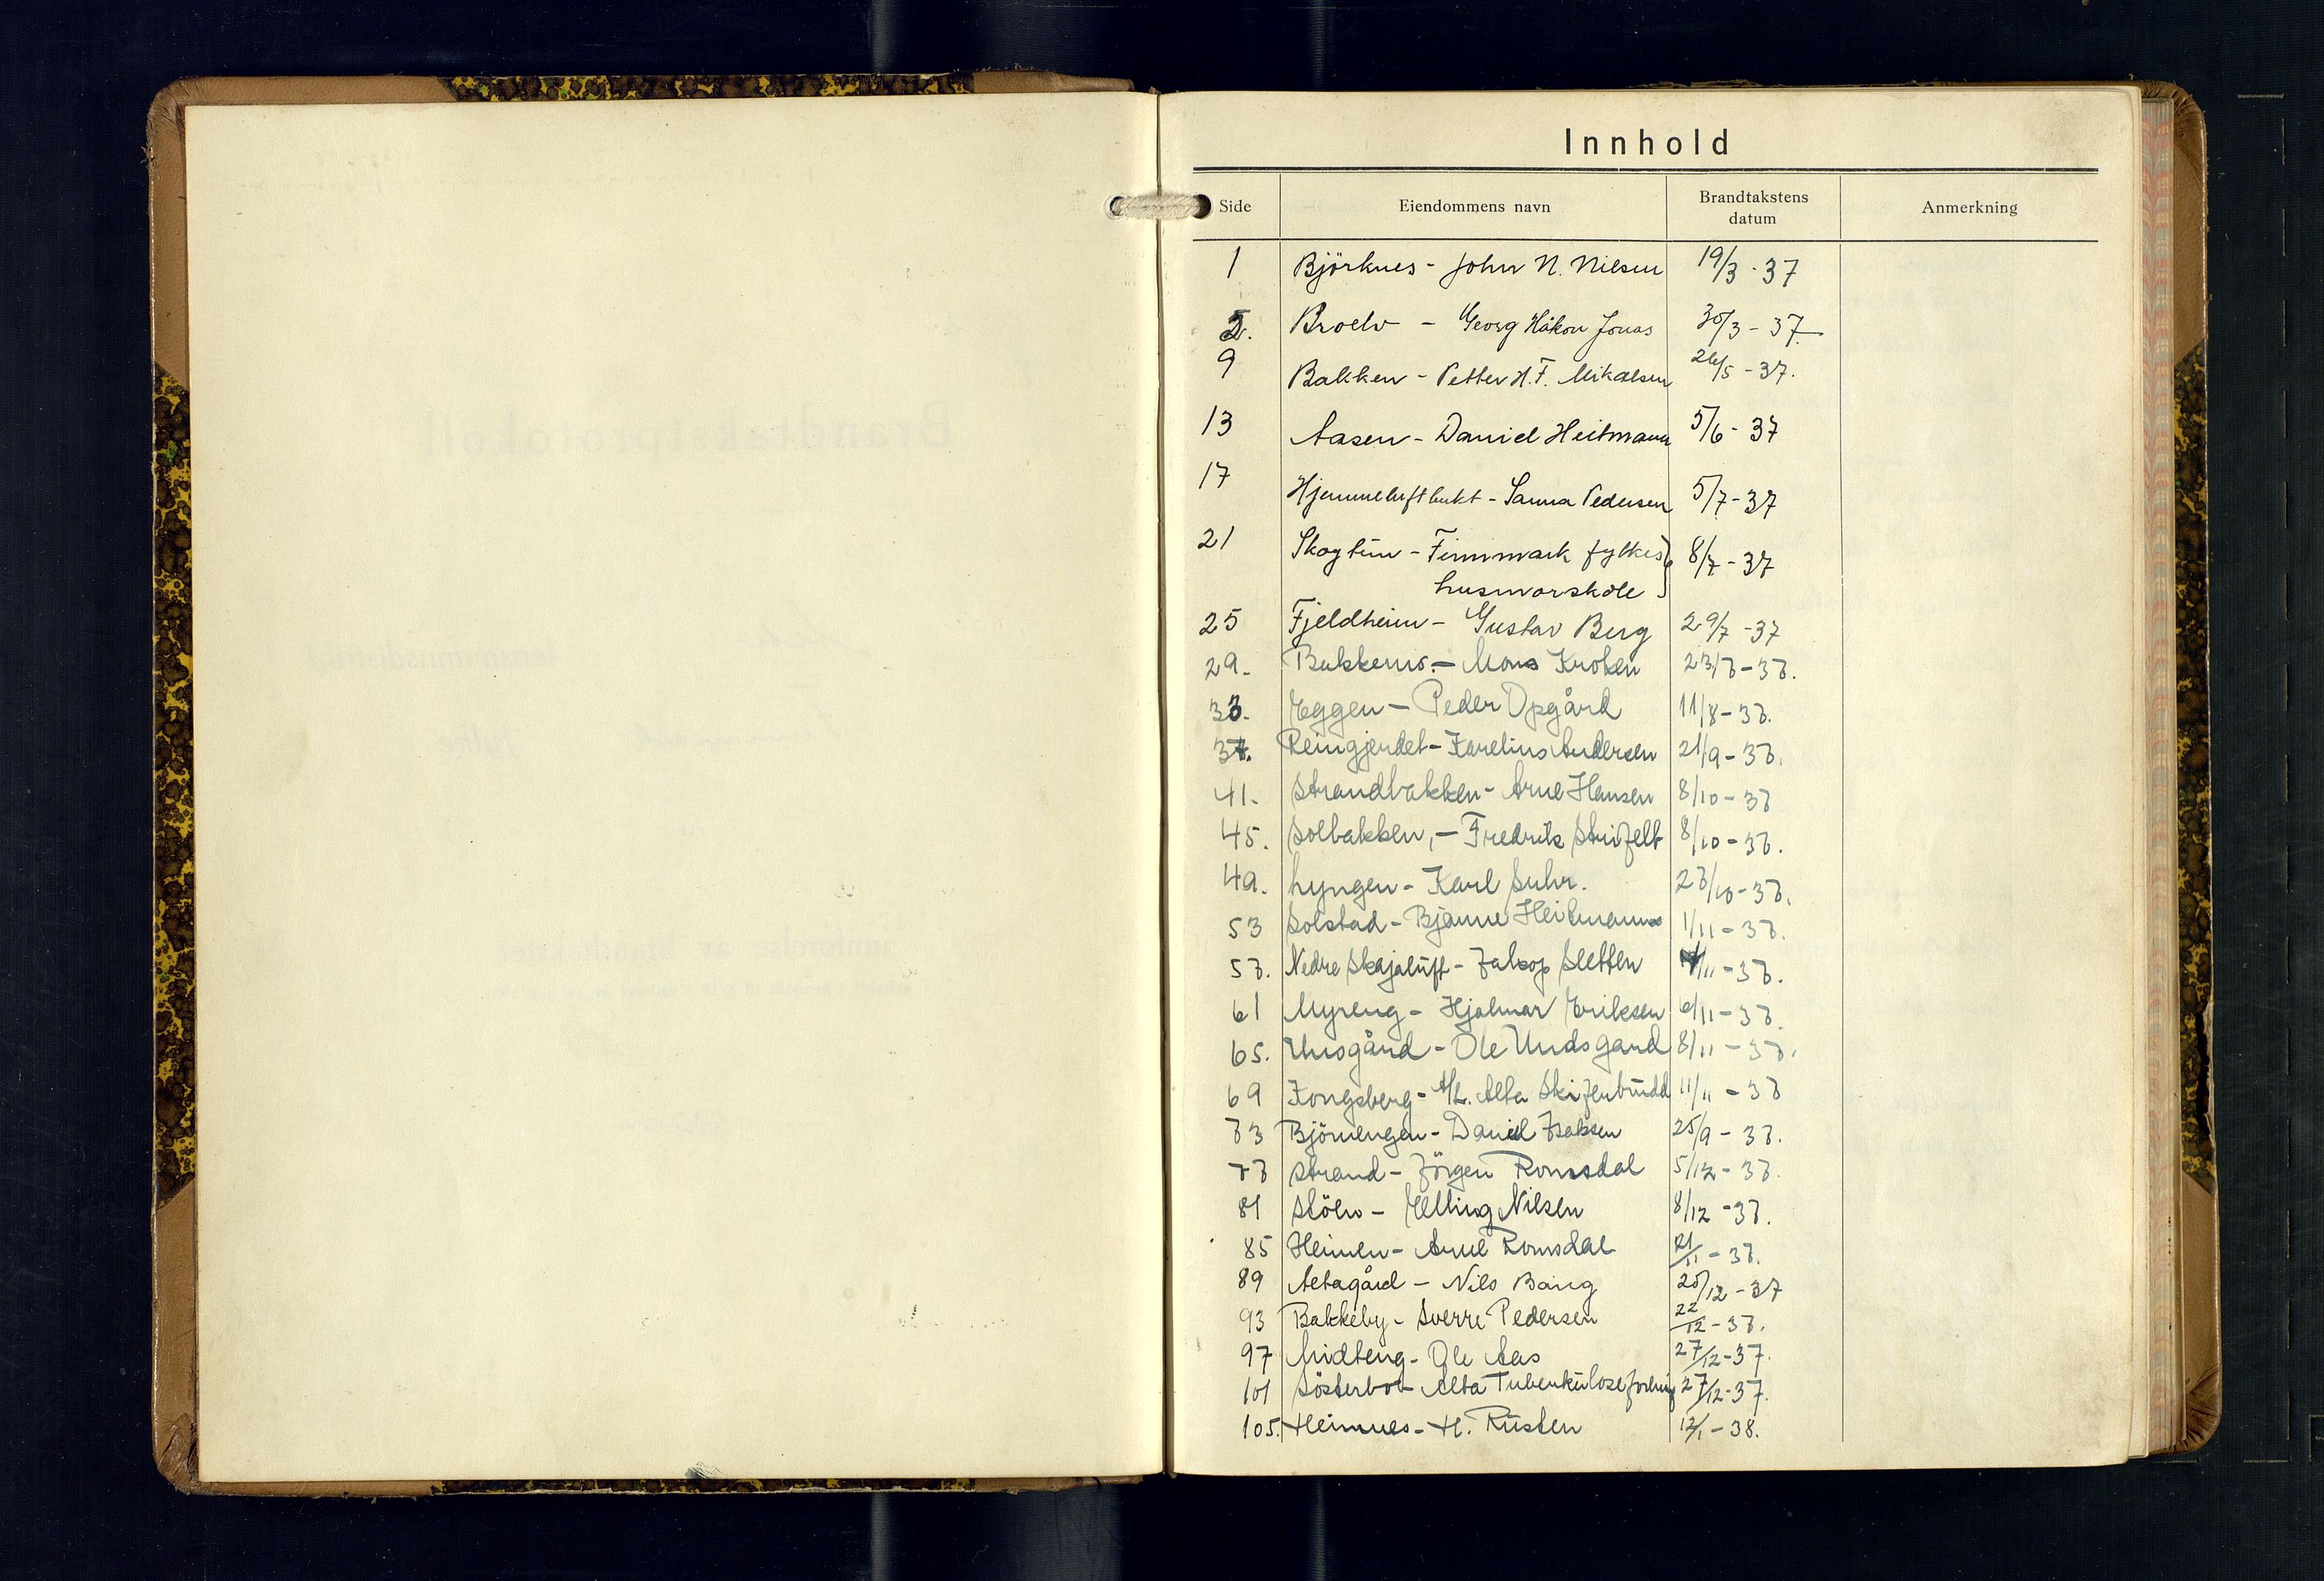 Innhold
Side Eiendommens navn Brandtakstens datum Anmerkning
1 Björknes - John N. Nilsen 19/3 - 37
5. Broelv - Georg Håkon Jonas 30/3 - 37
9 Bakken - Petter H. F. Mikalsen 26/5 - 37.
13 Aasen - Daniel Heitmann 5/6 - 37
17 Hjemmeluftbukt - Sanna Pedersen 5/7 - 37
21 Skogtun - Finnmark fylkes } 8/7 - 37
husmorskole
25 Fjeldheim - Gustav Berg 29/7 - 37
29. - Mons Kroken 23/7 - 37.
33. Eggen - Peder Opgård 11/8 - 37.
37. Reingjerdet - Karelius Andersen 21/9 - 37.
41. Strandbakken - Arne Hansen 8/10 - 37
45. Solbakken, - Fredrik Strifelt 8/10 - 37.
49. Lyngen - Karl Suhr. 27/10 - 37.
53 Solstad - Bjarne Heitmann 1/11 - 37.
57. Nedre Skajaluft - Jakop Sletten /11 - 37.
61 Myreng - Hjalmar Eriksen 6/11 - 37.
65. - Ole Undsgård 8/11 - 37.
69 Kongsberg - A/L. Alta Skiferbrudd 11/11 - 37
73 Björnengen - Daniel Isaksen 25/9 - 37.
77 Strand - Jörgen Romsdal 5/12 - 37.
81 Stöen - Elling Nilsen 8/12 - 37.
85 Heimen - Arne Romsdal 21/11 - 37.
89 Altagård - Nils Bang 20/12 - 37
93 Bakkeby - Sverre Pedersen 22/12 - 37.
97 Midteng - Ole Aas 27/12 - 37.
101 Sösterbol - Alta Tuberkuloseforening 27/12 - 37.
105. Heimnes - H. Rusten 12/1 - 38.